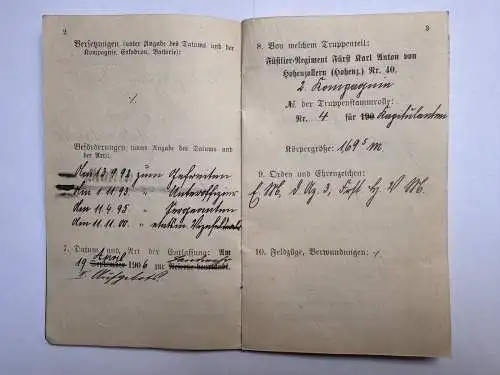 2
Versetzungen (unter Angabe des Datums und der
Kompagnie, Eskadron, Batterie):
⁒
Beförderungen (unter Angabe des Datums und
der Art):
Den 13.9.93 zum Gefreiten
Den 1.11.93 " Unteroffizier
Den 11.4.95 " Sergeanten
Den 11.11.00. " etatsm. Vizefeldwebel
7. Datum und Art der Entlassung: Am
April Landwehr
19 September 1906 zur Reserve beurlaubt.
I. Aufgebots.
3
8. Von welchem Truppenteil:
Füsilier-Regiment Fürst Karl Anton von
Hohenzollern (Hohenz.) Nr. 40.
2. Kompagnie
№ der Truppenstammrolle:
Nr. 4 für 190 Kapitulanten
Körpergröße: 1 69⁵ m
9. Orden und Ehrenzeichen:
10. Feldzüge, Verwundungen: ⁒